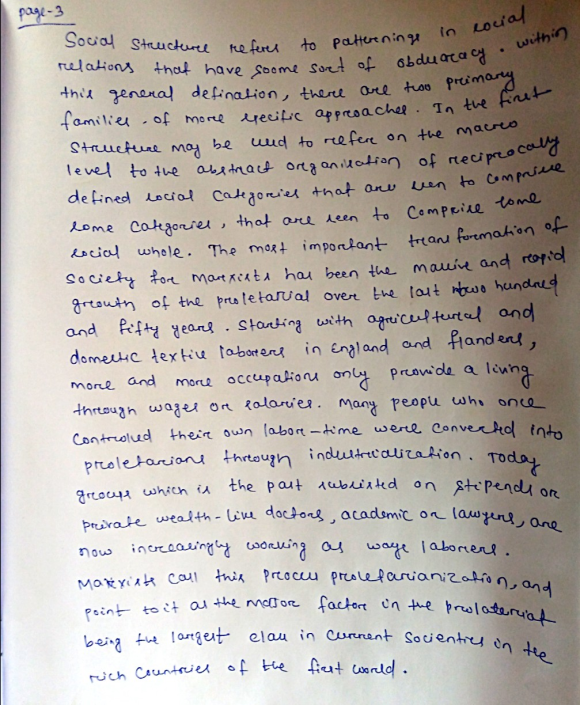 page-3
Social Structure refers to patternings in social
relations that have soome sort of obduracacy. within
this general defination, there are two primary
families. of more specific approaches. In the first
Structure may be used to refer on the macro
level to the abstract organisation of reciprocally
defined social Categories that are seen to comprise
some Categories, that are seen to Comprise some
social whole. The most important transformation of
Society for Marxists has been the massive and rapid
growth of the proletarial over the last two hundred
and fifty years. Starting with agricultural and
domestic textile laborers in England and flanders,
more and more occupations only provide a living
through wages or salaries. Many people who once
Controlled their own labor-time were converted into
proletarians through industrialization. Today
groups which is the past subsisted on stipends or
private wealth-like doctors, academic or lawyers, are
now increasingly working as wage laborers.
Marxists call this process proletarianization, and
point to it as the major factor in the prolateriat
being the largest class in current Socientres in the
rich Countries of the first world.